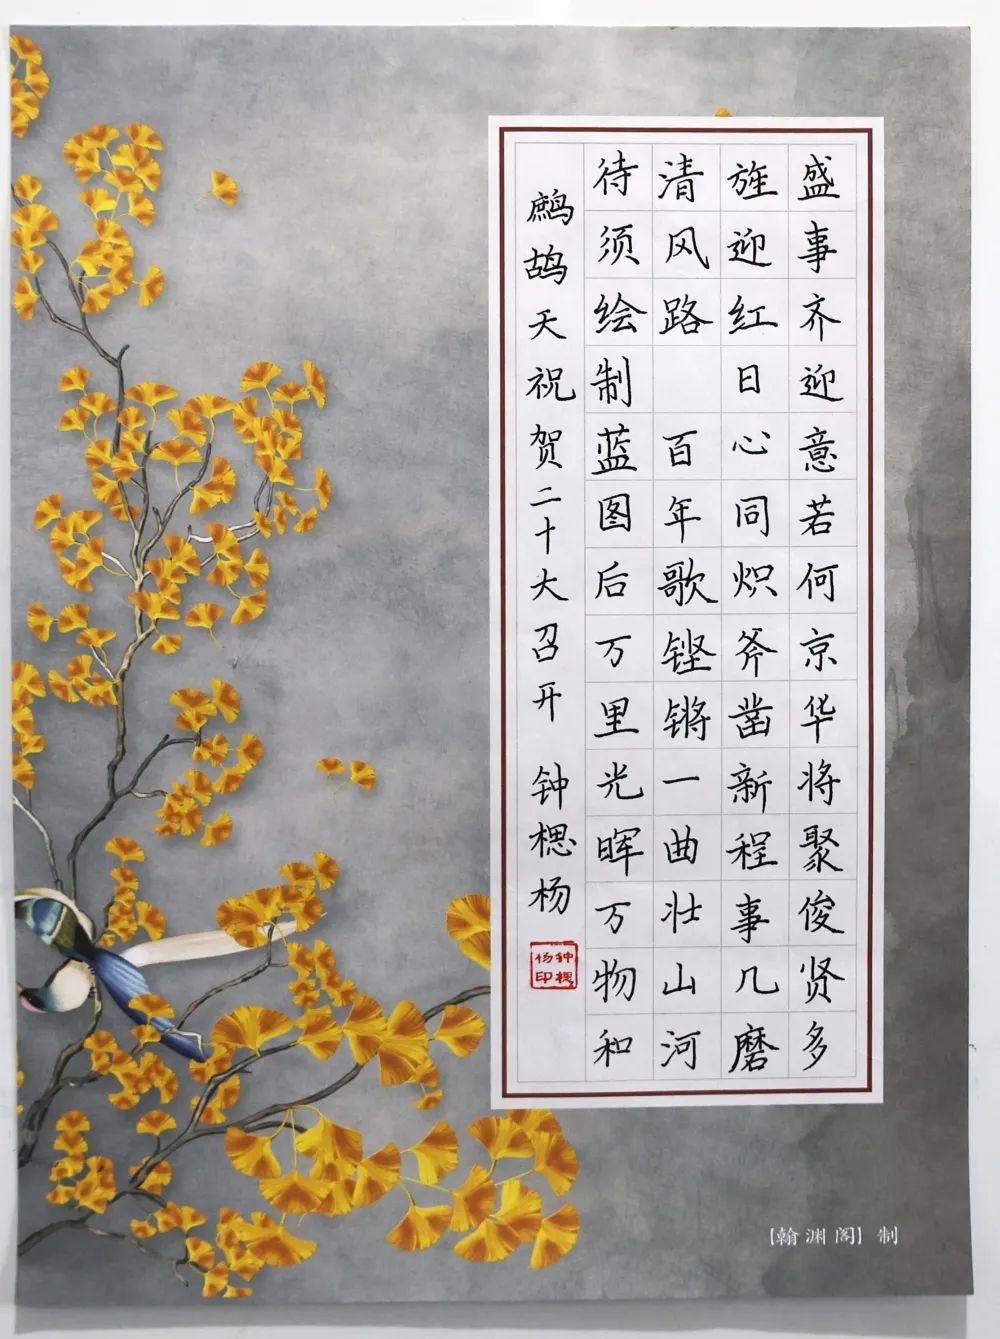 盛事齐迎意若何京华将聚俊贤多
旌迎红日心同炽斧凿新程事几磨
清风路 百年歌铿锵一曲壮山河
待须绘制蓝图后万里光晖万物和
鹧鸪天祝贺二十大召开 钟楒杨
钟楒
杨印
【翰渊阁】制